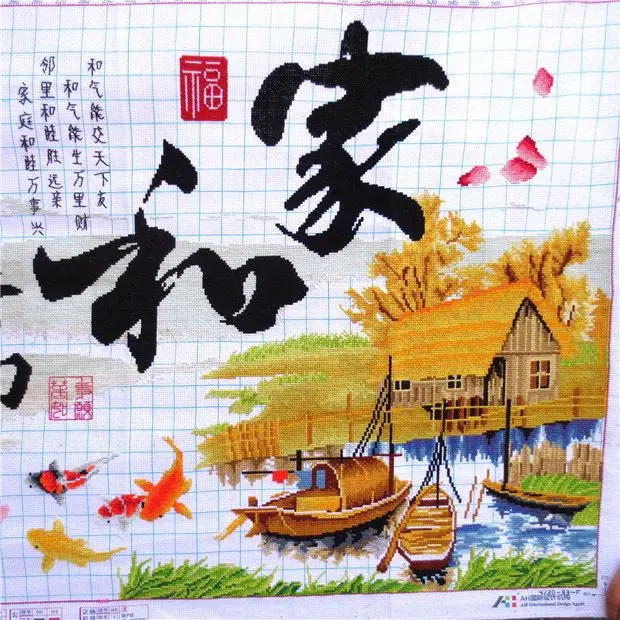 家和
福
和气能交天下友
和气能生万里财
邻里和睦胜远亲
家庭和睦万事兴
AH International Design Agent